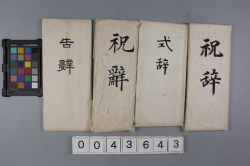 告辭
祝辭
式辞
祝辞
0043643